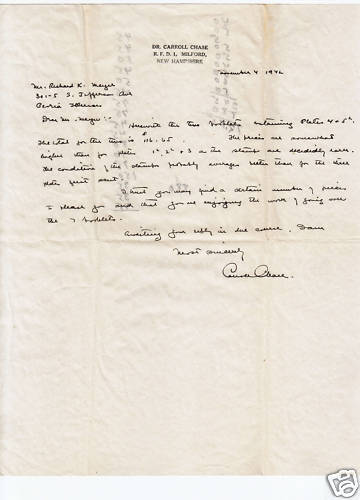 DR. CARROLL CHASE
R. F. D. 1, MILFORD,
NEW HAMPSHIRE
November 4 1942
Mr. Richard K. Meyer
301-5 S. Jefferson Ave
Peoria Illinois
Dear Mr. Meyer:-
Herewith the two booklets containing Plates 4 + 5
The total for the two is $116.65 The prices are somewhat
higher than for plates 1 2 + 3 as the stamps are decidedly rarer.
The condition of the stamps probably averages better than for the three
plates first sent.
I trust you may find a certain number of pieces
to please you and that you are enjoying the work of going over
the booklets.
Awaiting your reply in due course. I am
Most sincerely
Carroll Chase.
ebY